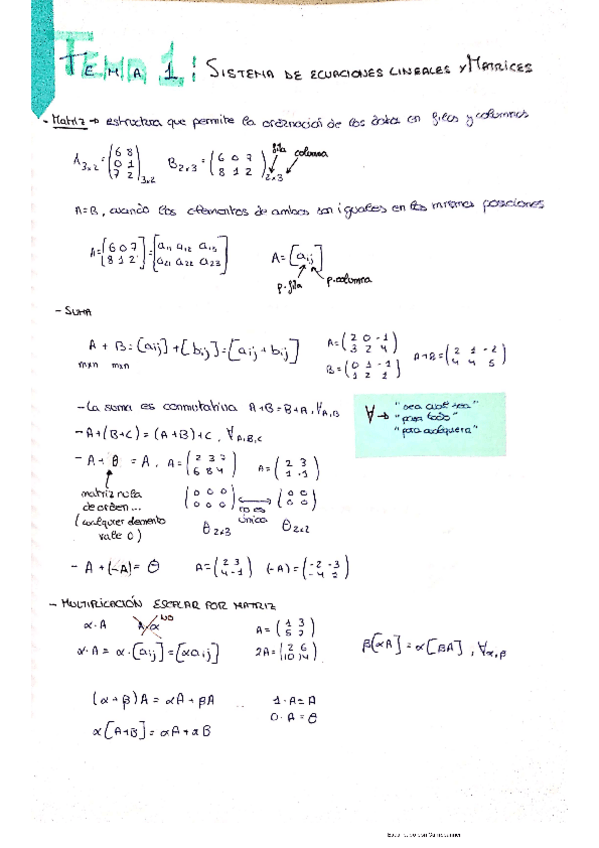 TEMA 1: SISTEMA DE ECUACIONES LINEALES Y MATRICES
- Matriz → estructura que permite la ordenación de los datos en filas y columnas
A₃ₓ₂ = (6 8 / 0 1 / 7 2)₃ₓ₂ B₂ₓ₃ = (6 0 7 / 8 1 2)₂ₓ₃ fila columna
A=B, cuando los elementos de ambas son iguales en las mismas posiciones
A = [6 0 7 / 8 1 2] = [a₁₁ a₁₂ a₁₃ / a₂₁ a₂₂ a₂₃] A = [aᵢⱼ]
p. fila p. columna
- SUMA
A + B = [aᵢⱼ] + [bᵢⱼ] = [aᵢⱼ + bᵢⱼ] A = (2 0 -1 / 3 2 4) A+B = (2 1 -2 / 4 4 5)
mxn mxn B = (0 1 -1 / 1 2 1)
- La suma es conmutativa A+B = B+A, ∀A,B
∀ → "sea cual sea"
"para todo"
"para cualquiera"
- A+(B+C) = (A+B)+C, ∀A,B,C
- A + θ = A, A = (2 3 7 / 6 8 4) A = (2 3 / 1 -1)
matriz nula
de orden...
(cualquier elemento
vale 0)
(0 0 0 / 0 0 0) ↔ (0 0 / 0 0)
no es
única
θ₂ₓ₃ θ₂ₓ₂
- A + (-A) = θ A = (2 3 / 4 -1) (-A) = (-2 -3 / -4 2)
- MULTIPLICACIÓN ESCALAR POR MATRIZ
α·A A·α NO A = (1 3 / 5 7)
α·A = α·[aᵢⱼ] = [αaᵢⱼ] 2A = (2 6 / 10 14) β[αA] = α[βA], ∀α,β
(α+β)A = αA + βA 1·A = A
0·A = θ
α[A+B] = αA + αB